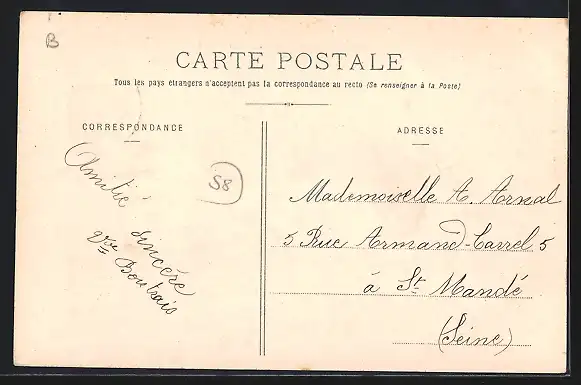 B
CARTE POSTALE
Tous les pays étrangers n'acceptent pas la correspondance au recto (Se renseigner à la Poste)
CORRESPONDANCE
Amitié
sincère
Vve Boutrais
58
ADRESSE
Mademoiselle A. Arnal
5 Rue Armand-Carrel 5
à St Mandé
(Seine)